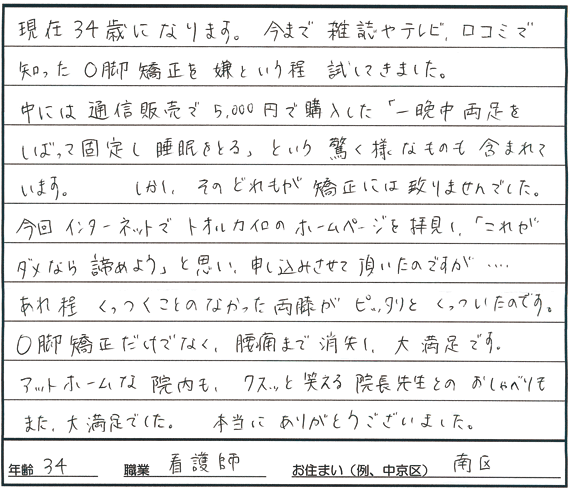 現在34歳になります。 今まで 雑誌やテレビ、口コミで
知った O脚矯正を 嫌という程 試してきました。
中には 通信販売で 5,000円で購入した「一晩中両足を
しばって固定し 睡眠をとる」という 驚く様なものも 含まれて
います。 しかし、そのどれもが 矯正には致りませんでした。
今回 インターネットで トオルカイロのホームページを拝見し、「これが
ダメなら 諦めよう」と思い、申し込みさせて頂いたのですが ‥‥
あれ程 くっつくことのなかった両膝が ピッタリと くっついたのです。
O脚矯正だけでなく、腰痛まで消失し、大満足です。
アットホームな 院内も、クスッと笑える 院長先生との おしゃべりも
また、大満足でした。 本当に ありがとうございました。
年齢 34 職業 看護師 お住まい（例、中京区） 南区